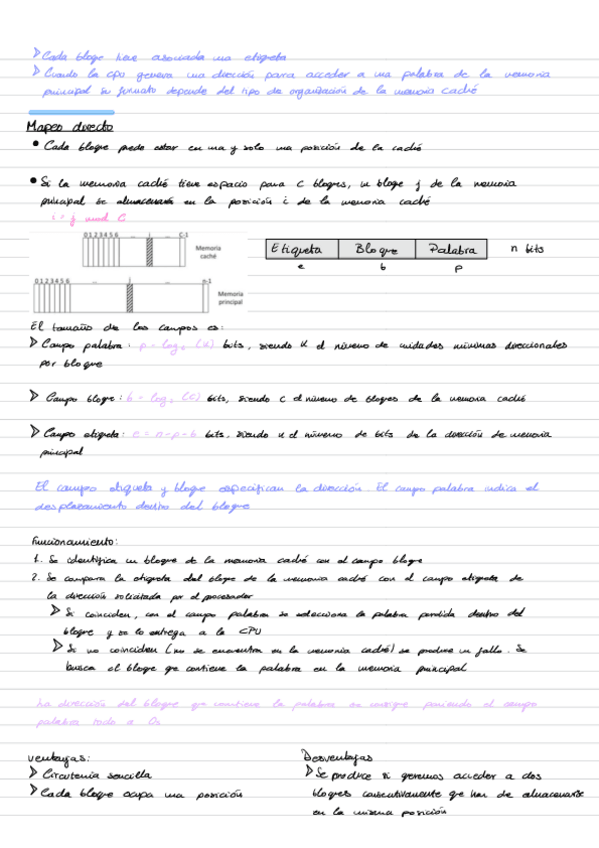 ▷ Cada bloque tiene asociada una etiqueta
▷ Cuando la cpu genera una dirección para acceder a una palabra de la memoria
principal su formato depende del tipo de organización de la memoria caché
Mapeo directo
• Cada bloque puede estar en una y solo una posición de la caché
• Si la memoria caché tiene espacio para C bloques, un bloque j de la memoria
principal se almacenará en la posición i de la memoria caché
i = j mod C
0 1 2 3 4 5 6 ... i ... C-1
Memoria
caché
Etiqueta Bloque Palabra n bits
e b p
0 1 2 3 4 5 6 ... j ... n-1
Memoria
principal
El tamaño de los campos es:
▷ Campo palabra: p = log₂ (K) bits, siendo K el número de unidades mínimas direccionales
por bloque
▷ Campo bloque: b = log₂ (C) bits, siendo C el número de bloques de la memoria caché
▷ Campo etiqueta: e = n-p-b bits, siendo n el número de bits de la dirección de memoria
principal
El campo etiqueta y bloque especifican la dirección. El campo palabra indica el
desplazamiento dentro del bloque
Funcionamiento:
1. Se identifica un bloque de la memoria caché con el campo bloque
2. Se compara la etiqueta del bloque de la memoria caché con el campo etiqueta de
la dirección solicitada por el procesador
▷ Si coinciden, con el campo palabra se selecciona la palabra perdida dentro del
bloque y se lo entrega a la CPU
▷ Si no coinciden (no se encuentra en la memoria caché) se produce un fallo. Se
busca el bloque que contiene la palabra en la memoria principal
La dirección del bloque que contiene la palabra se consigue poniendo el campo
palabra todo a 0s
Ventajas:
▷ Circuitería sencilla
▷ Cada bloque ocupa una posición
Desventajas
▷ Se produce si queremos acceder a dos
bloques consecutivamente que han de almacenarse
en la misma posición